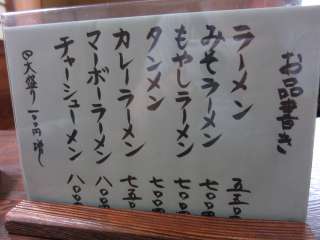 お品書き
ラーメン 五五〇
みそラーメン 七〇〇
もやしラーメン 七〇〇
タンメン 七〇〇
カレーラーメン 七五〇
マーボーラーメン 八〇〇
チャーシューメン 八〇〇
大盛り 一〇〇円増し